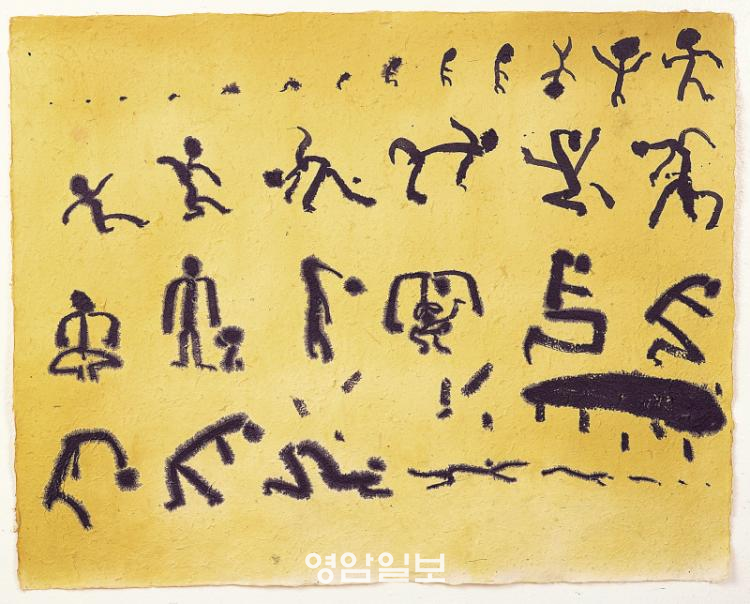 영암일보